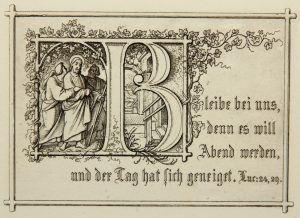 Bleibe bei uns,
denn es will
Abend werden,
und der Tag hat sich geneiget. Luc: 24, 29.